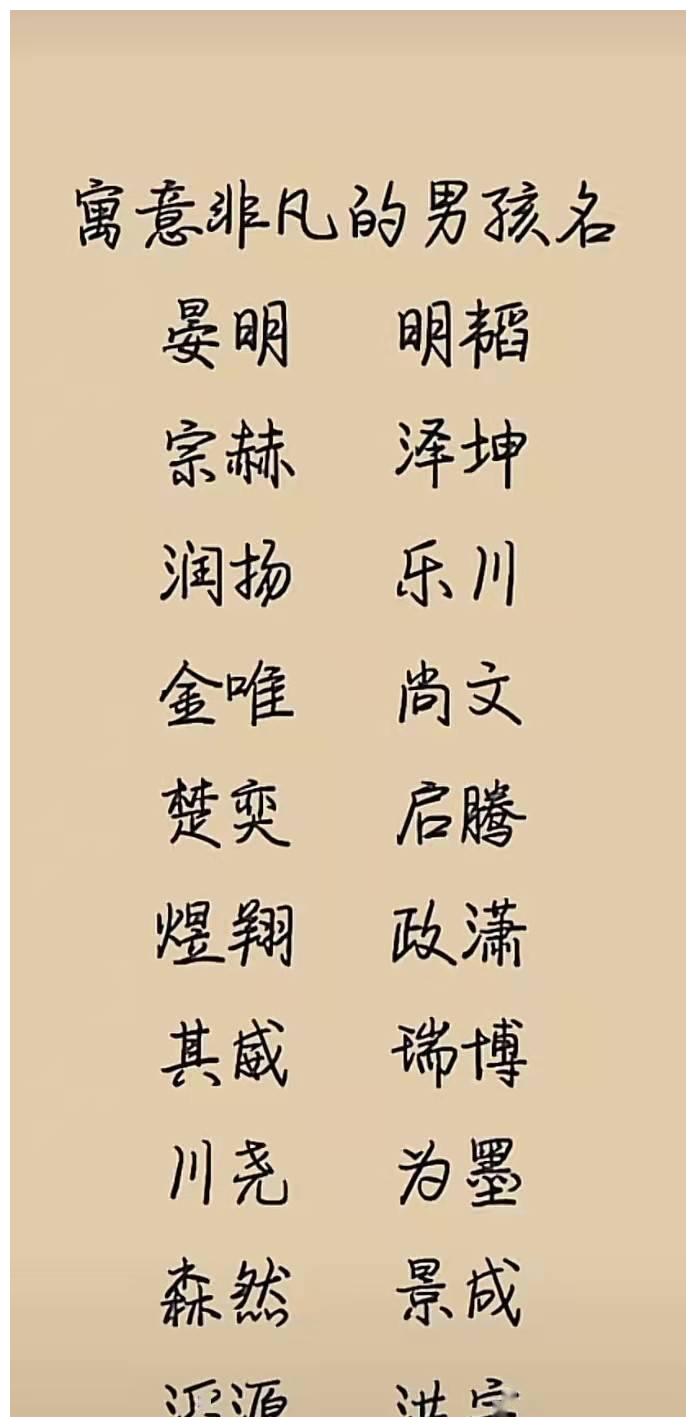 寓意非凡的男孩名
晏明 明韬
宗赫 泽坤
润扬 乐川
金唯 尚文
楚奕 启腾
煜翔 政潇
其威 瑞博
川尧 为墨
森然 景成
源 洪